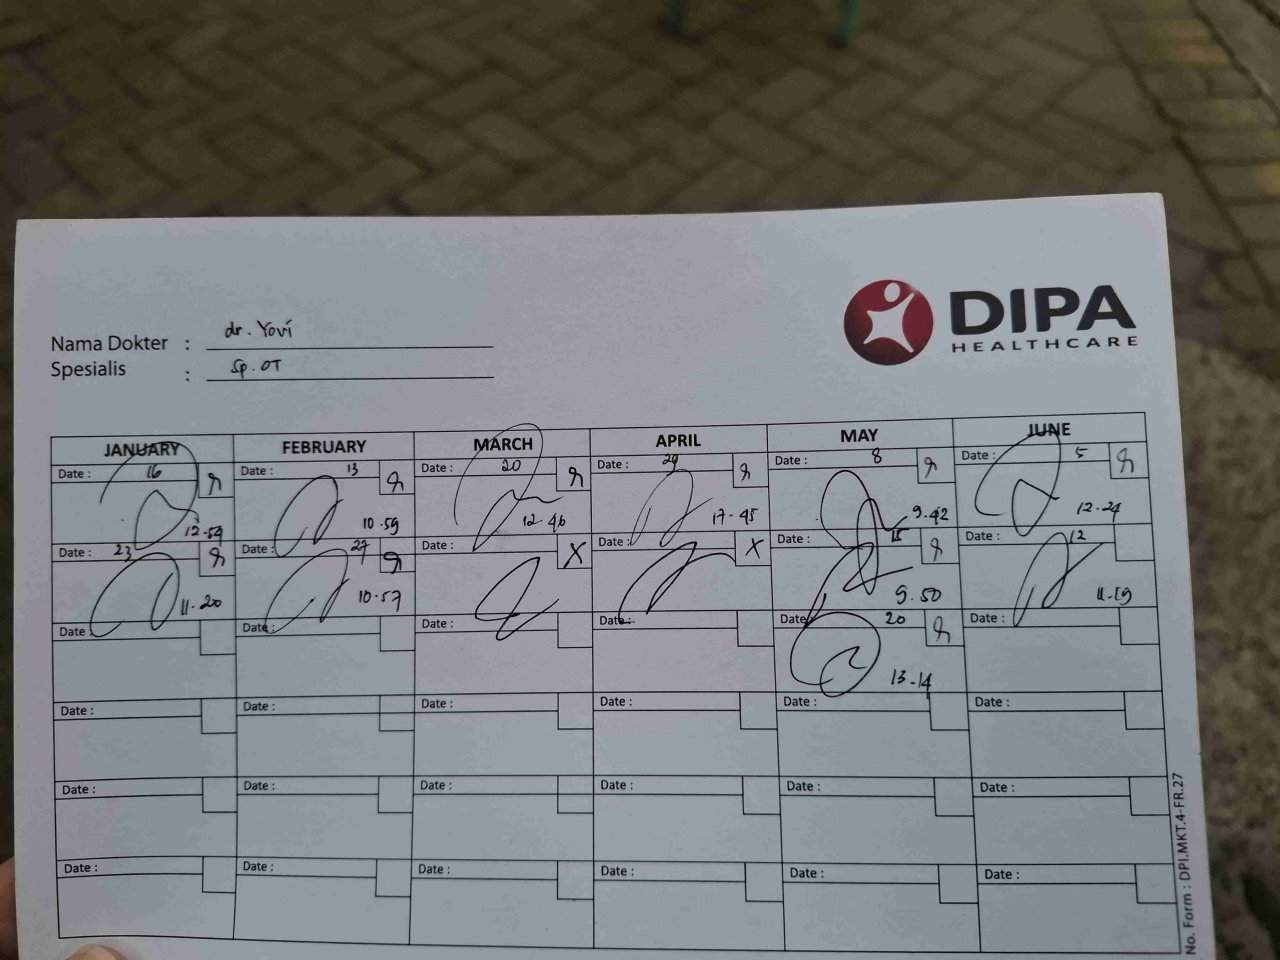 DIPA
HEALTHCARE
Nama Dokter : dr. Yovi
Spesialis : Sp. OT
JANUARY FEBRUARY MARCH APRIL MAY JUNE
Date : 16 Date : 13 Date : 20 Date : 29 Date : 8 Date : 5
12-59 10-59 12-46 17-45 9-42 12-24
Date : 23 Date : 27 Date : X Date : X Date : 15 Date : 12
11-20 10-57 9.50 11-19
Date : Date : Date : Date : Date : 20 Date :
13-14
Date : Date : Date : Date : Date : Date :
Date : Date : Date : Date : Date : Date :
Date : Date : Date : Date : Date : Date :
No. Form : DPI.MKT.4-FR.27